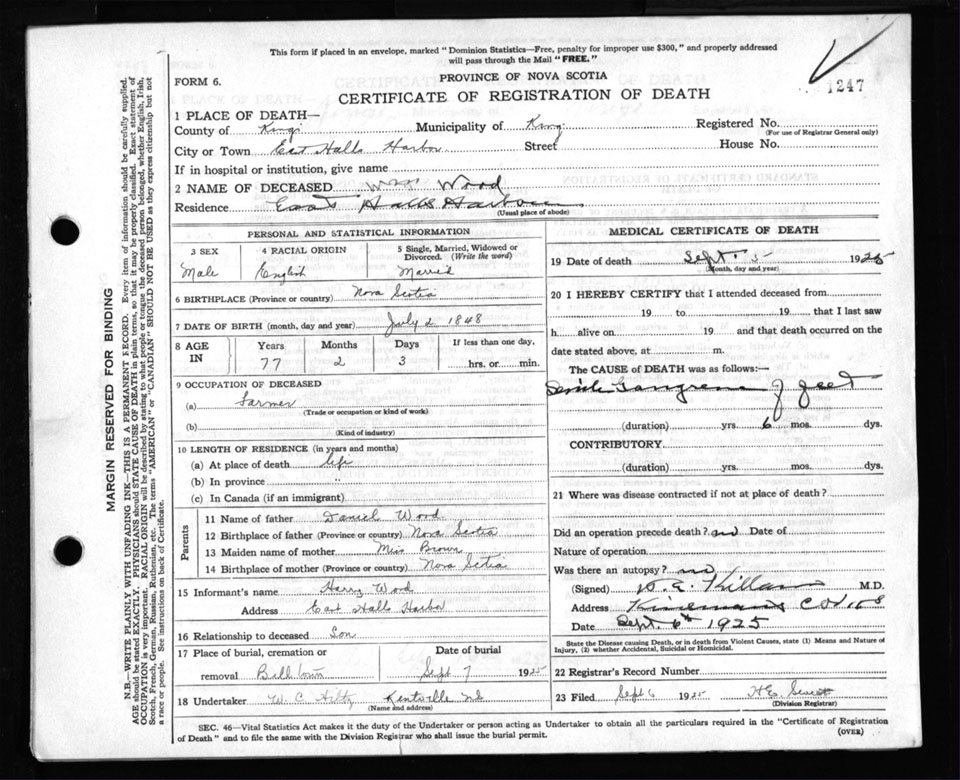 This form if placed in an envelope, marked "Dominion Statistics—Free, penalty for improper use $300," and properly addressed
will pass through the Mail "FREE."
FORM 6.
PROVINCE OF NOVA SCOTIA
CERTIFICATE OF REGISTRATION OF DEATH
1247
1 PLACE OF DEATH—
County of Kings Municipality of Kings Registered No.
(For use of Registrar General only)
City or Town East Halls Harbor Street House No.
If in hospital or institution, give name
2 NAME OF DECEASED Wm Wood
Residence East Halls Harbour
(Usual place of abode)
PERSONAL AND STATISTICAL INFORMATION
3 SEX 4 RACIAL ORIGIN 5 Single, Married, Widowed or Divorced. (Write the word)
Male English Married
6 BIRTHPLACE (Province or country) Nova Scotia
7 DATE OF BIRTH (month, day and year) July 2 1848
8 AGE IN Years Months Days If less than one day,
77 2 3 hrs. or min.
9 OCCUPATION OF DECEASED
(a) Farmer
(Trade or occupation or kind of work)
(b)
(Kind of industry)
10 LENGTH OF RESIDENCE (in years and months)
(a) At place of death life
(b) In province "
(c) In Canada (if an immigrant)
Parents
11 Name of father Daniel Wood
12 Birthplace of father (Province or country) Nova Scotia
13 Maiden name of mother Miss Brown
14 Birthplace of mother (Province or country) Nova Scotia
15 Informant's name Harry Wood
Address East Halls Harbor
16 Relationship to deceased Son
17 Place of burial, cremation or Date of burial
removal Billtown Sept 7 1925
18 Undertaker W. C. Hiltz Kentville
(Name and address)
MEDICAL CERTIFICATE OF DEATH
19 Date of death Sept. 5 1925
(Month, day and year)
20 I HEREBY CERTIFY that I attended deceased from
19 to 19 that I last saw
h alive on 19 and that death occurred on
date stated above, at m.
The CAUSE of DEATH was as follows:—
Senile Gangrene of feet
(duration) yrs. 6 mos. dys.
CONTRIBUTORY
(duration) yrs. mos. dys.
21 Where was disease contracted if not at place of death?
Did an operation precede death? no Date of
Nature of operation
Was there an autopsy? no
(Signed) Killam M.D.
Address Kinsmans Corners
Date Sept 6th 1925
State the Disease causing Death, or in death from Violent Causes, state (1) Means and Nature of
Injury, (2) whether Accidental, Suicidal or Homicidal.
22 Registrar's Record Number
23 Filed Sept 6 1925
(Division Registrar)
SEC. 46—Vital Statistics Act makes it the duty of the Undertaker or person acting as Undertaker to obtain all the particulars required in the "Certificate of Registration
of Death" and to file the same with the Division Registrar who shall issue the burial permit.
(OVER)
MARGIN RESERVED FOR BINDING
N.B.—WRITE PLAINLY WITH UNFADING INK—THIS IS A PERMANENT RECORD. Every item of information should be carefully supplied.
AGE should be stated EXACTLY. PHYSICIANS should STATE CAUSE OF DEATH in plain terms, so that it may be properly classified. Exact statement of
OCCUPATION is very important. RACIAL ORIGIN will be described by stating to what people or tongue the deceased person belonged, whether English, Irish,
Scotch, French, German, Russian, Ruthenian, etc. The terms "AMERICAN" or "CANADIAN" SHOULD NOT BE USED as they express citizenship but not
a race or people. See instructions on back of Certificate.